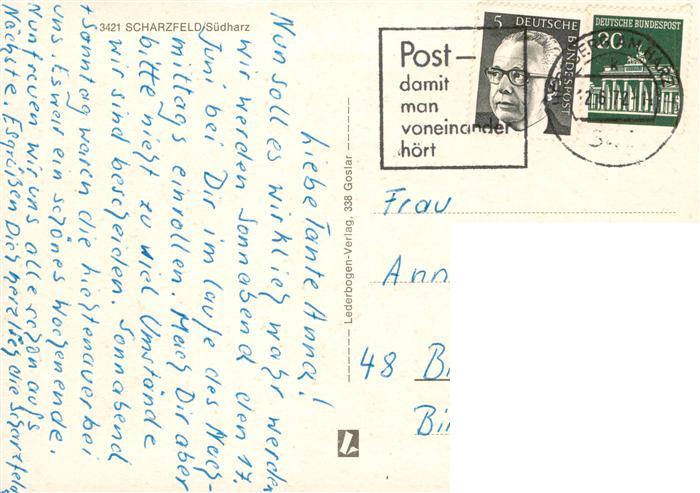 3421 SCHARZFELD/Südharz
Liebe Tante Anna!
Nun soll es wirklich wahr werden
wir werden Sonnabend den 17.
Juni bei Dir im laufe des Nach-
mittags einrollen. Mach Dir aber
bitte nicht zu viel Umstände
wir sind bescheiden. Sonnabend
+ Sonntag waren die bei
uns. Es war ein schönes Wochenende.
Nun freuen wir uns alle schon aufs
Nächste. Es grüßen Dich herzlich die Scharzfeld
Lederbogen-Verlag, 338 Goslar
Post –
damit
man
voneinander
hört
5 DEUTSCHE BUNDESPOST
DEUTSCHE BUNDESPOST
20
Frau
Ann
48 B
Bi